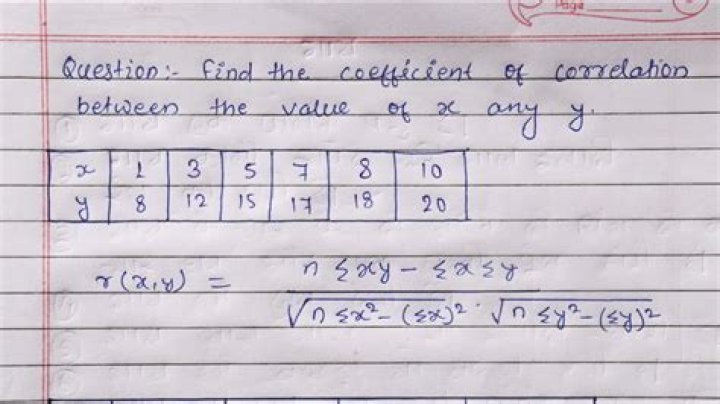 Page
Question:- Find the coefficient of correlation
between the value of x any y.
x 1 3 5 7 8 10
y 8 12 15 17 18 20
r(x,y) = n Σxy - Σx Σy
√n Σx² - (Σx)² · √n Σy² - (Σy)²